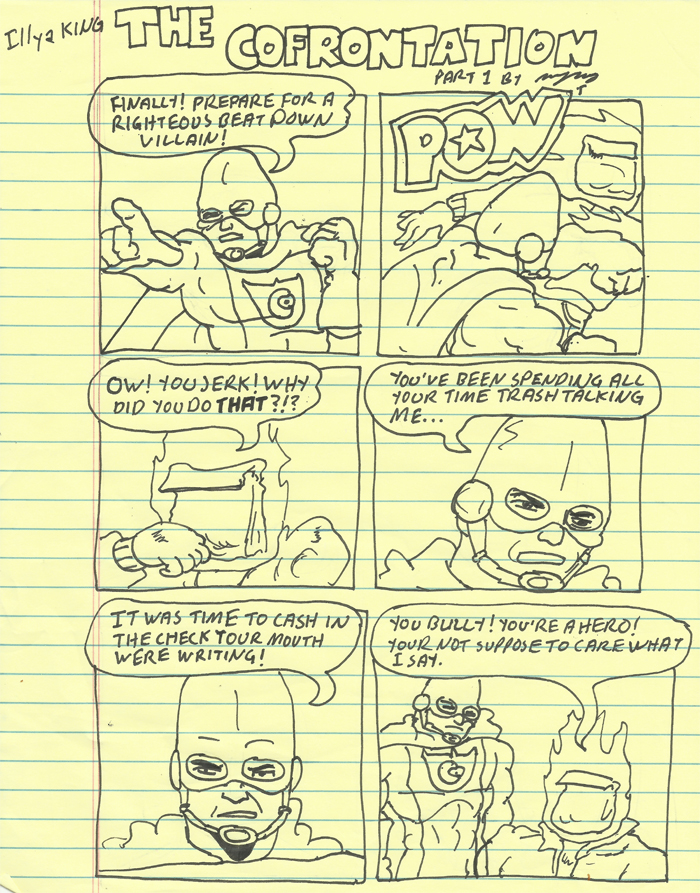 Illya KING
THE
COFRONTATION
PART 1 BY
FINALLY! PREPARE FOR A
RIGHTEOUS BEAT DOWN
VILLAIN!
POW
OW! YOU JERK! WHY
DID YOU DO THAT?!?
YOU'VE BEEN SPENDING ALL
YOUR TIME TRASH TALKING
ME...
IT WAS TIME TO CASH IN
THE CHECK YOUR MOUTH
WERE WRITING!
YOU BULLY! YOU'RE A HERO!
YOUR NOT SUPPOSE TO CARE WHAT
I SAY.